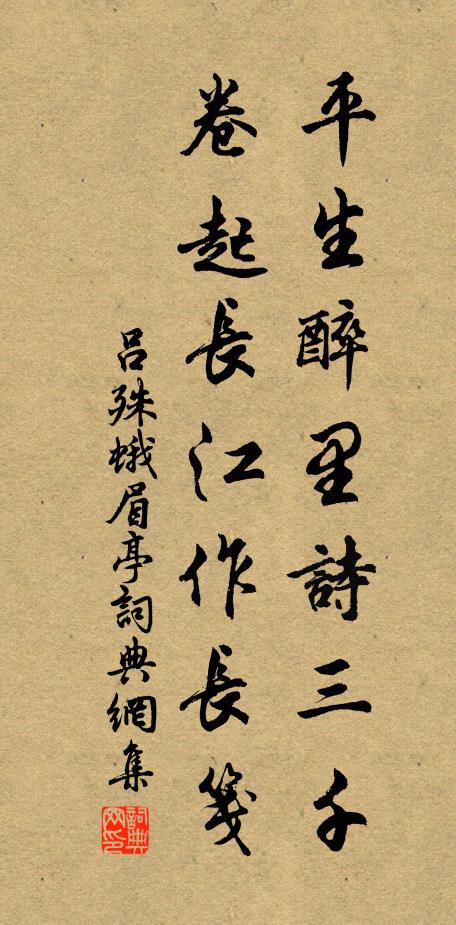 平生醉里詩三千
卷起長江作長箋
吕殊蛾眉亭詞典網集
詞典网印